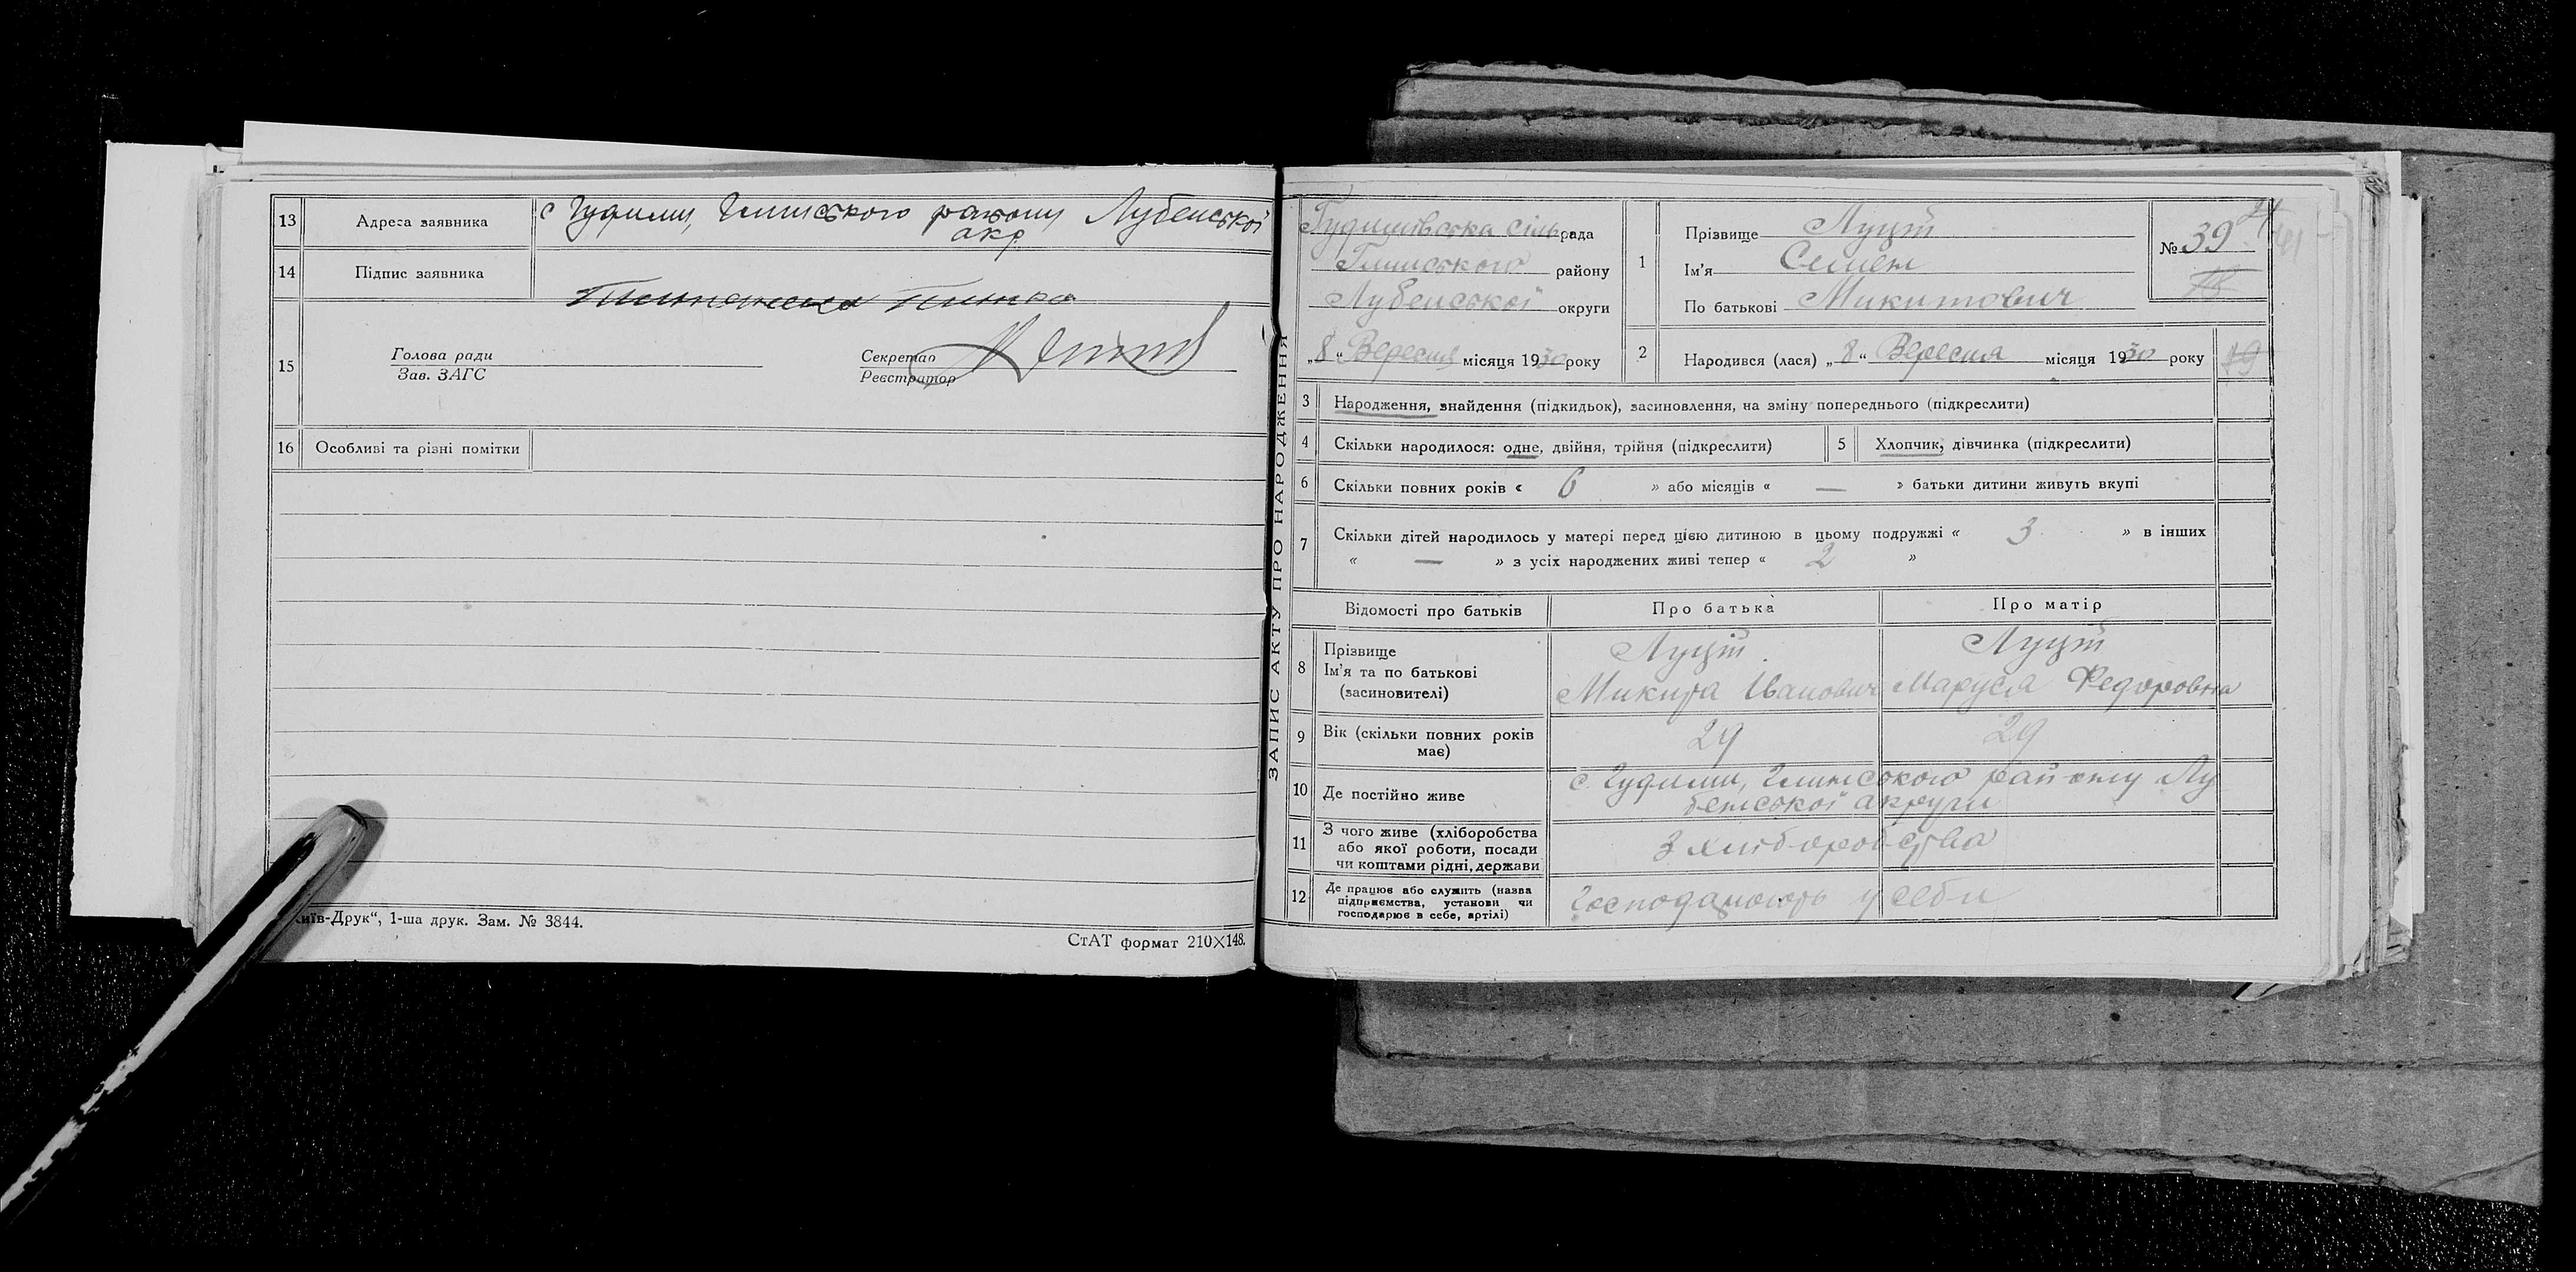 13 Адреса заявника с Гудими, Глинського району Лубенської
окр
14 Підпис заявника
15 Голова ради
Зав. ЗАГС
Секретар
Реєстратор
16 Особливі та різні помітки
иїв-Друк“, 1-ша друк. Зам. № 3844.
СтАТ формат 210×148.
ЗАПИС АКТУ ПРО НАРОДЖЕННЯ
Гудимівська сільрада
Глинського району
Лубенської округи
„8“ Вересня місяця 1930 року
1 Прізвище Луцт
Ім'я Семен
По батькові Микитович
№ 39
2 Народився (лася) „8“ Вересня місяця 1930 року
3 Народження, знайдення (підкидьок), засиновлення, на зміну попереднього (підкреслити)
4 Скільки народилося: одне, двійня, трійня (підкреслити) 5 Хлопчик, дівчинка (підкреслити)
6 Скільки повних років « 6 » або місяців « — » батьки дитини живуть вкупі
7 Скільки дітей народилось у матері перед цією дитиною в цьому подружжі « 3 » в інших
« — » з усіх народжених живі тепер « 2 »
Відомості про батьків Про батька Про матір
8 Прізвище
Ім'я та по батькові
(засиновителі)
Луцт
Микита Іванович
Луцт
Маруся Федоровна
9 Вік (скільки повних років
має)
29 29
10 Де постійно живе с. Гудими, Глинського району Лу
бенської округи
11 З чого живе (хліборобства
або якої роботи, посади
чи коштами рідні, держави
З хліборобства
12 Де працює або служить (назва
підприємства, установи чи
господарює в себе, артілі)
Господарюють у себи